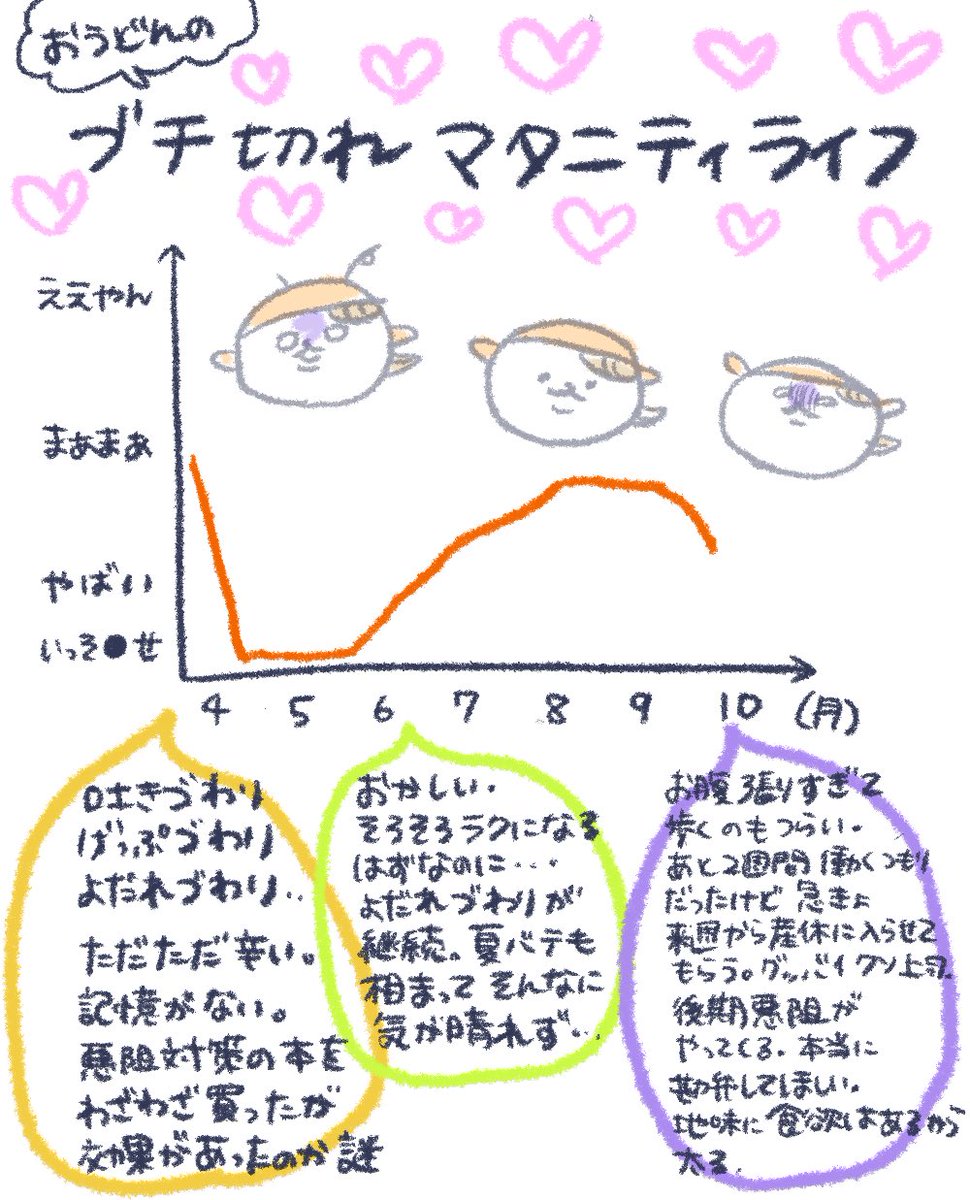 おうどんの
ブチ切れ マタニティライフ
ええやん
まぁまぁ
やばい
いっそ●せ
4 5 6 7 8 9 10 (月)
吐きづわり
げっぷづわり
よだれづわり‥
ただただ辛い。
記憶がない。
悪阻対策の本を
わざわざ買ったが
効果があったのか謎
おかしい.
そろそろラクになる
はずなのに…
よだれづわりが
継続。夏バテも
相まってそんなに
気が晴れず‥
お腹張りすぎて
歩くのもつらい。
あと2週間働くつもり
だったけど急きょ
来週から産休に入らせて
もらう。グッバイクソ上司.
後期悪阻が
やってくる。本当に
勘弁してほしい。
地味に食欲はあるから
太る.